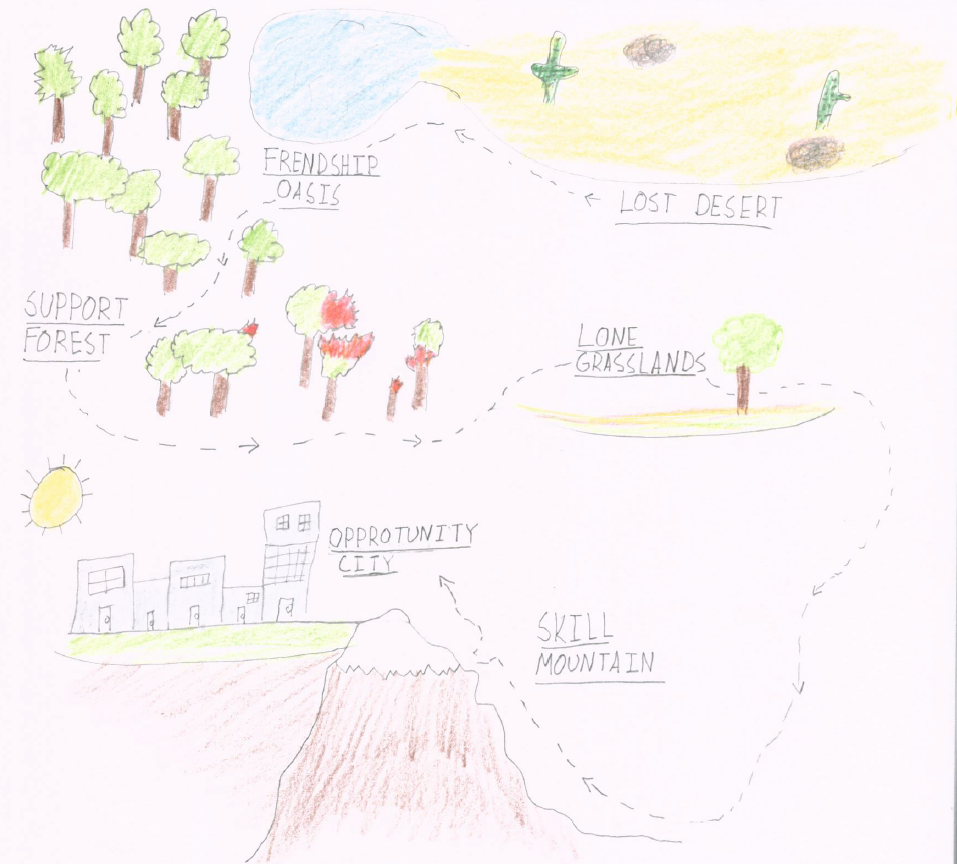 FRENDSHIP
OASIS
LOST DESERT
SUPPORT
FOREST
LONE
GRASSLANDS
OPPROTUNITY
CITY
SKILL
MOUNTAIN